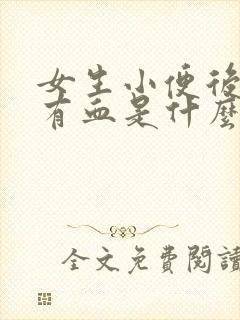 女生小便後
有血是什麼
全文免費閱讀